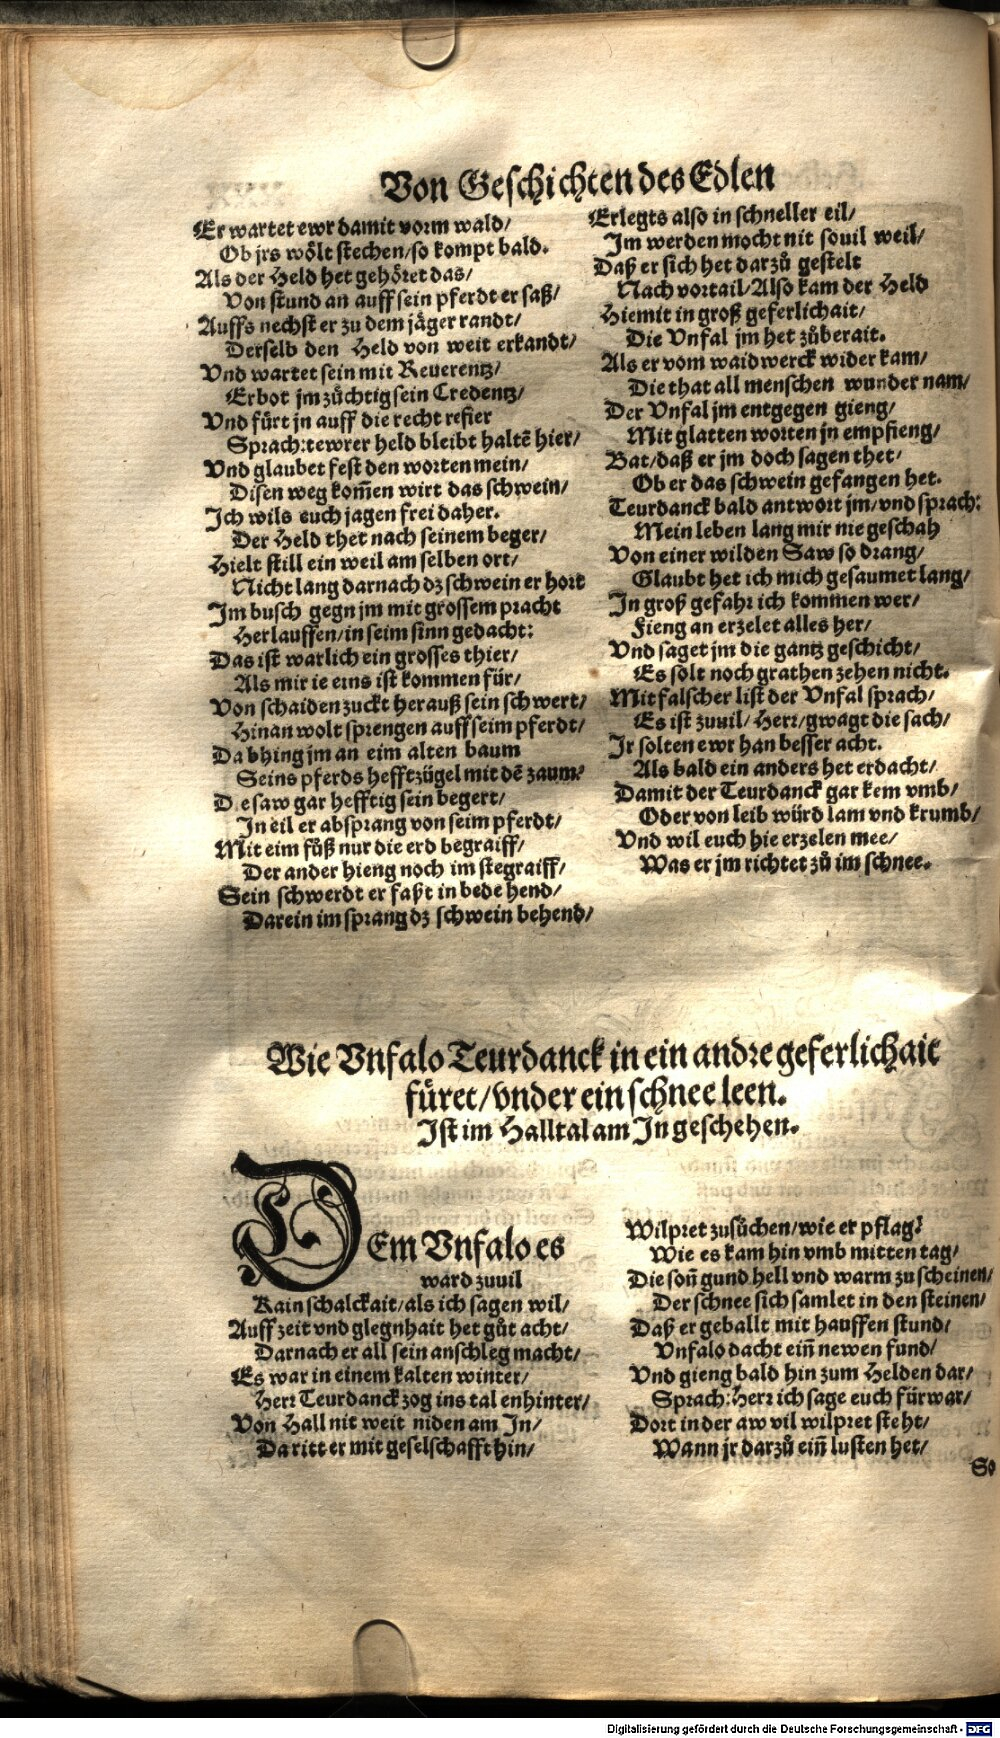 Von Geschichten des Edlen
Er wartet ewr damit vorm wald/
Ob jrs wölt stechen/so kompt bald.
Als der Held het gehöret das/
Von stund an auff sein pferdt er saß/
Auffs nechst er zu dem jäger randt/
Derselb den Held von weit erkandt/
Vnd wartet sein mit Reuerentz/
Erbot jm züchtig sein Credentz/
Vnd fürt jn auff die recht refier
Sprach:tewrer held bleibt haltē hier/
Vnd glaubet fest den worten mein/
Disen weg kom̄en wirt das schwein/
Ich wils euch jagen frei daher.
Der Held thet nach seinem beger/
Hielt still ein weil am selben ort/
Nicht lang darnach dz schwein er hort
Im busch gegn jm mit grossem pracht
Herlauffen/in seim sinn gedacht:
Das ist warlich ein grosses thier/
Als mir ie eins ist kommen für/
Von schaiden zuckt herauß sein schwert/
Hinan wolt sprengen auff seim pferdt/
Da bhing jm an eim alten baum
Seins pferds hefftzügel mit dē zaum:
Die saw gar hefftig sein begert/
In eil er absprang von seim pferdt/
Mit eim fůß nur die erd begraiff/
Der ander hieng noch im stegraiff/
Sein schwerdt er faßt in bede hend/
Darein im sprang dz schwein behend/
Erlegts also in schneller eil/
Im werden mocht nit souil weil/
Daß er sich het darzů gestelt
Nach vortail/Also kam der Held
Hiemit in groß geferlichait/
Die Vnfal jm het zůberait.
Als er vom waidwerck wider kam/
Die that all menschen wunder nam/
Der Vnfal jm entgegen gieng/
Mit glatten worten jn empfieng/
Bat/daß er jm doch sagen thet/
Ob er das schwein gefangen het.
Teurdanck bald antwort jm/vnd sprach:
Mein leben lang mir nie geschah
Von einer wilden Saw so drang/
Glaubt het ich mich gesaumet lang/
In groß gefahr ich kommen wer/
Fieng an erzelet alles her/
Vnd saget jm die gantz geschicht/
Es solt noch grathen zehen nicht.
Mit falscher list der Vnfal sprach/
Es ist zuuil/Herr/gwagt die sach/
Ir solten ewr han besser acht.
Als bald ein anders het erdacht/
Damit der Teurdanck gar kem vmb/
Oder von leib würd lam vnd krumb/
Vnd wil euch hie erzelen mee/
Was er jm richtet zů im schnee.
Wie Vnfalo Teurdanck in ein andre geferlichait
füret/vnder ein schnee leen.
Ist im Halltal am In geschehen.
DEm Vnfalo es
ward zuuil
Kain schalckait/als ich sagen wil/
Auff zeit vnd glegnhait het gůt acht/
Darnach er all sein anschleg macht/
Es war in einem kalten winter/
Herr Teurdanck zog ins tal enhinter/
Von Hall nit weit niden am In/
Da ritt er mit geselschafft hin/
Wilpret zusůchen/wie er pflag:
Wie es kam hin vmb mitten tag/
Die son̄ gund hell vnd warm zu scheinen/
Der schnee sich samlet in den steinen/
Daß er geballt mit hauffen stund/
Vnfalo dacht ein̄ newen fund/
Vnd gieng bald hin zum Helden dar/
Sprach:Herr ich sage euch fürwar/
Dort in der aw vil wilpret steht/
Wann jr darzů ein̄ lusten het/
So
Digitalisierung gefördert durch die Deutsche Forschungsgemeinschaft - DFG